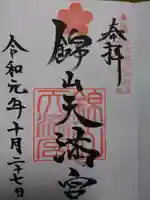 奉拝
錦山天満宮
令和元年十月二十七日